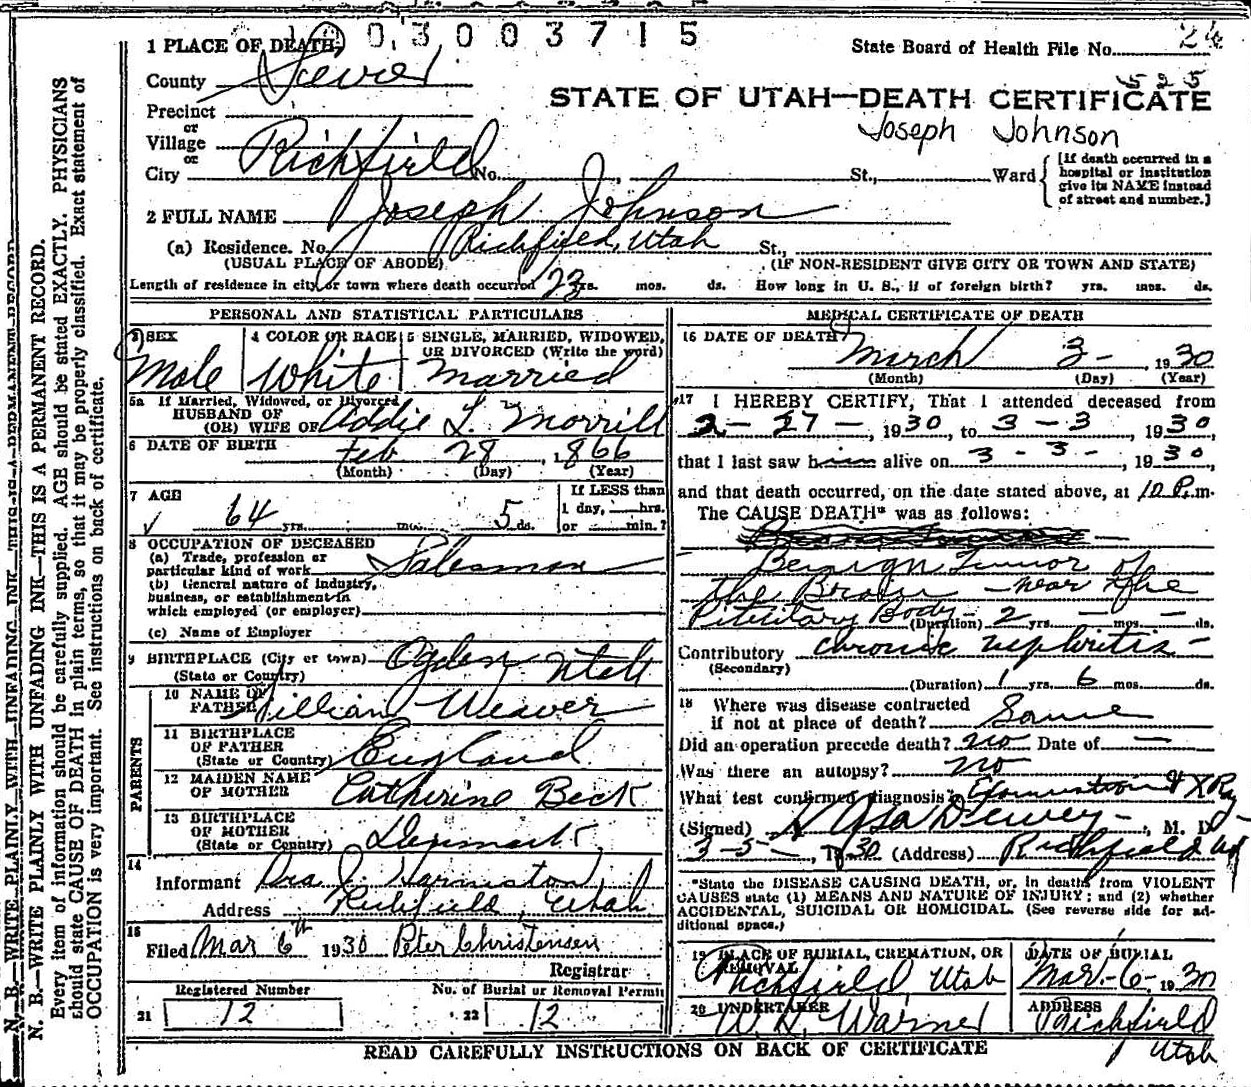 03003715
1 PLACE OF DEATH State Board of Health File No. 26
County Sevier 525
STATE OF UTAH—DEATH CERTIFICATE
Precinct
Joseph Johnson
or
Village
or
City Richfield No. , St., Ward
[If death occurred in a
hospital or institution
give its NAME instead
of street and number.]
2 FULL NAME Joseph Johnson
(a) Residence. No. Richfield, Utah St.,
(USUAL PLACE OF ABODE) (IF NON-RESIDENT GIVE CITY OR TOWN AND STATE)
Length of residence in city or town where death occurred 23 yrs. mos. ds. How long in U. S., if of foreign birth? yrs. mos. ds.
PERSONAL AND STATISTICAL PARTICULARS
3 SEX 4 COLOR OR RACE 5 SINGLE, MARRIED, WIDOWED,
OR DIVORCED (Write the word)
Male White Married
5a If Married, Widowed, or Divorced
HUSBAND OF
(OR) WIFE OF Addie L. Morrill
6 DATE OF BIRTH Feb 28, 1866
(Month) (Day) (Year)
7 AGE If LESS than
1 day, hrs.
64 yrs. mos. 5 ds. or min.?
8 OCCUPATION OF DECEASED
(a) Trade, profession or
particular kind of work Salesman
(b) General nature of industry,
business, or establishment in
which employed (or employer)
(c) Name of Employer
9 BIRTHPLACE (City or town) Ogden Utah
(State or Country)
PARENTS
10 NAME OF
FATHER William Weaver
11 BIRTHPLACE
OF FATHER
(State or Country) England
12 MAIDEN NAME
OF MOTHER Catherine Beck
13 BIRTHPLACE
OF MOTHER
(State or Country) Denmark
14
Informant J. Harmston,
Address Richfield, Utah
15
Filed Mar 6th 1930 Peter Christensen
Registrar
Registered Number No. of Burial or Removal Permit
21 12 22 12
MEDICAL CERTIFICATE OF DEATH
16 DATE OF DEATH
March 3- , 1930
(Month) (Day) (Year)
17 I HEREBY CERTIFY, That I attended deceased from
2-27-, 1930, to 3-3, 1930,
that I last saw him alive on 3-3-, 1930,
and that death occurred, on the date stated above, at 10 P.m.
The CAUSE DEATH* was as follows:
Benign Tumor of
the Brain - near the
Pituitary Body - (Duration) 2 yrs. - mos. - ds.
Contributory Chronic nephritis -
(Secondary)
(Duration) 1 yrs. 6 mos. ds.
18 Where was disease contracted
if not at place of death? Same
Did an operation precede death? no Date of —
Was there an autopsy? no
What test confirmed diagnosis? Examination & X Ray
(Signed) Asa Dewey -, M. D.
3-5-, 1930 (Address) Richfield Ut
*State the DISEASE CAUSING DEATH, or, in deaths from VIOLENT
CAUSES state (1) MEANS AND NATURE OF INJURY; and (2) whether
ACCIDENTAL, SUICIDAL OR HOMICIDAL. (See reverse side for ad-
ditional space.)
19 PLACE OF BURIAL, CREMATION, OR
REMOVAL
Richfield, Utah
DATE OF BURIAL
Mar-6-1930
20 UNDERTAKER
W. H. Warner
ADDRESS
Richfield
Utah
READ CAREFULLY INSTRUCTIONS ON BACK OF CERTIFICATE
N. B.—WRITE PLAINLY WITH UNFADING INK—THIS IS A PERMANENT RECORD
N. B.—WRITE PLAINLY WITH UNFADING INK—THIS IS A PERMANENT RECORD.
Every item of information should be carefully supplied. AGE should be stated EXACTLY. PHYSICIANS
should state CAUSE OF DEATH in plain terms, so that it may be properly classified. Exact statement of
OCCUPATION is very important. See instructions on back of certificate.